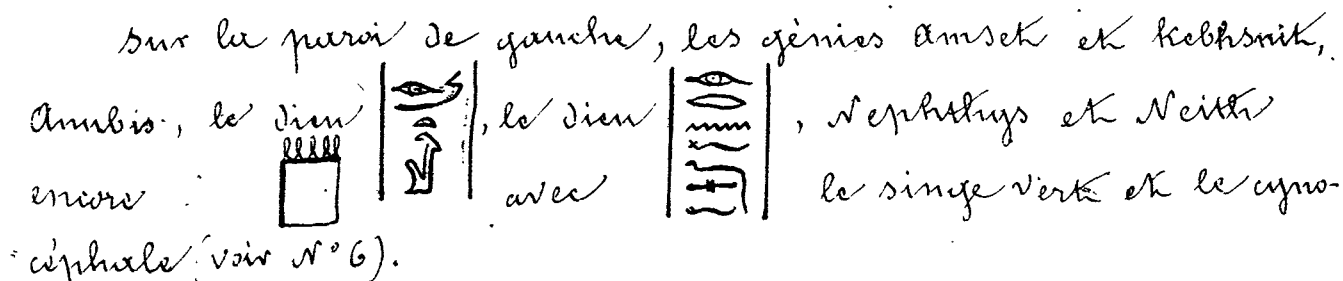 Sur la paroi de gauche, les génies Amset et Kebhsnit,
Anubis, le dieu , le dieu , Nephthys et Neith
encore avec le singe vert et le cyno-
céphale (voir N° 6).